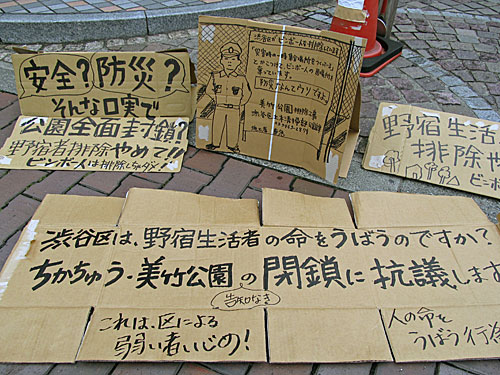 安全?防災?
そんな口実で
公園全面封鎖?
野宿者排除やめて!!
ビンボー人は排除しちゃダメ!
渋谷区がビンボー人を排除しています
美竹公園排除は
野宿生活
排除や
ビンボ
渋谷区は、野宿生活者の命をうばうのですか?
ちかちゅう・美竹公園の閉鎖に抗議します
告知なき
これは、区による
弱い者いじめ!
人の命を
うばう行為